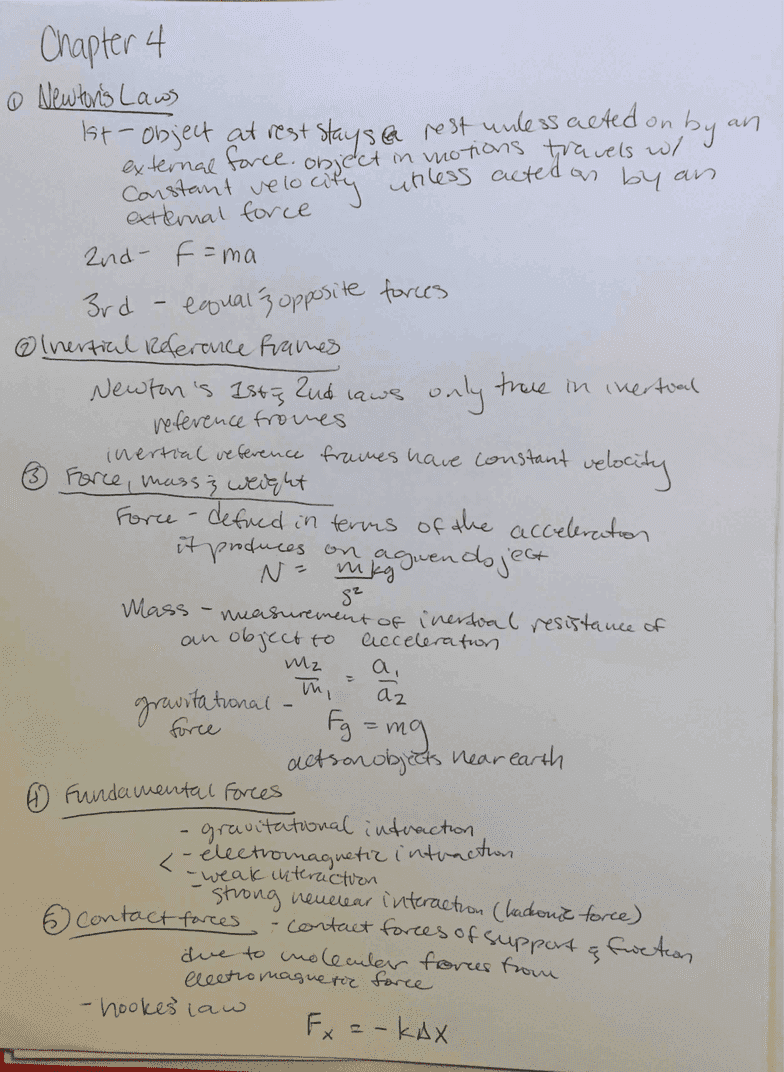 Chapter 4
① Newton's Laws
1st - object at rest stays @ rest unless acted on by an
external force. object in motions travels w/
constant velocity unless acted on by an
external force
2nd - F = ma
3rd - equal & opposite forces
② Inertial Reference Frames
Newton's 1st & 2nd laws only true in inertial
reference frames
inertial reference frames have constant velocity
③ Force, mass & weight
Force - defined in terms of the acceleration
it produces on a given object
N = m kg / s²
Mass - measurement of inertial resistance of
an object to acceleration
m₂/m₁ = a₁/a₂
gravitational force - Fg = mg
acts on objects near earth
④ Fundamental Forces
- gravitational interaction
< - electromagnetic interaction
- weak interaction
- strong nuclear interaction (hadronic force)
⑤ Contact forces - contact forces of support & friction
due to molecular forces from
electromagnetic force
- hooke's law
Fx = -kΔx